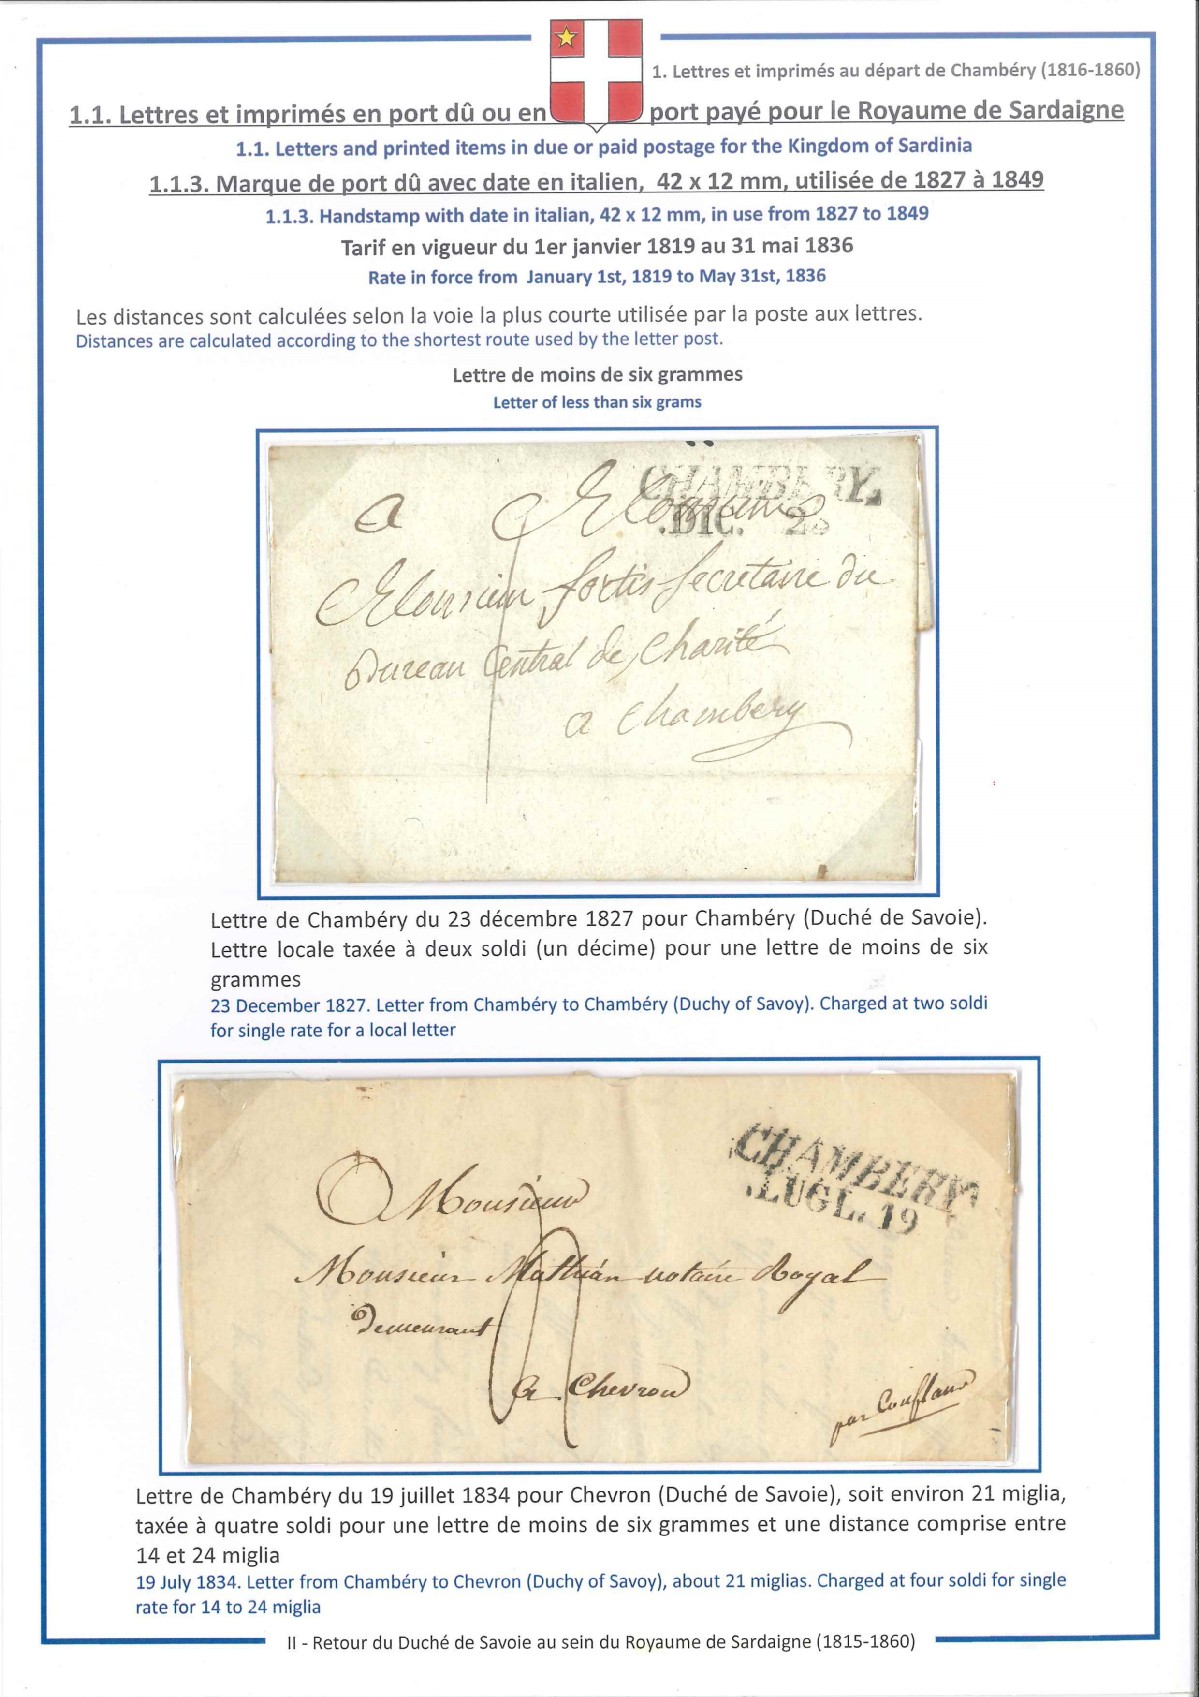 1. Lettres et imprimés au départ de Chambéry (1816-1860)
1.1. Lettres et imprimés en port dû ou en port payé pour le Royaume de Sardaigne
1.1. Letters and printed items in due or paid postage for the Kingdom of Sardinia
1.1.3. Marque de port dû avec date en italien, 42 x 12 mm, utilisée de 1827 à 1849
1.1.3. Handstamp with date in italian, 42 x 12 mm, in use from 1827 to 1849
Tarif en vigueur du 1er janvier 1819 au 31 mai 1836
Rate in force from January 1st, 1819 to May 31st, 1836
Les distances sont calculées selon la voie la plus courte utilisée par la poste aux lettres.
Distances are calculated according to the shortest route used by the letter post.
Lettre de moins de six grammes
Letter of less than six grams
CHAMBERY.
.DIC. 23
a Monsieur
Monsieur fortis Secretaire du
Bureau Central de Charité
a Chambery
Lettre de Chambéry du 23 décembre 1827 pour Chambéry (Duché de Savoie).
Lettre locale taxée à deux soldi (un décime) pour une lettre de moins de six
grammes
23 December 1827. Letter from Chambéry to Chambéry (Duchy of Savoy). Charged at two soldi
for single rate for a local letter
CHAMBERY.
.LUGL. 19
Monsieur
Monsieur Mathian notaire Royal
demeurant
a Chevron
par Conflans
Lettre de Chambéry du 19 juillet 1834 pour Chevron (Duché de Savoie), soit environ 21 miglia,
taxée à quatre soldi pour une lettre de moins de six grammes et une distance comprise entre
14 et 24 miglia
19 July 1834. Letter from Chambéry to Chevron (Duchy of Savoy), about 21 miglias. Charged at four soldi for single
rate for 14 to 24 miglia
II - Retour du Duché de Savoie au sein du Royaume de Sardaigne (1815-1860)